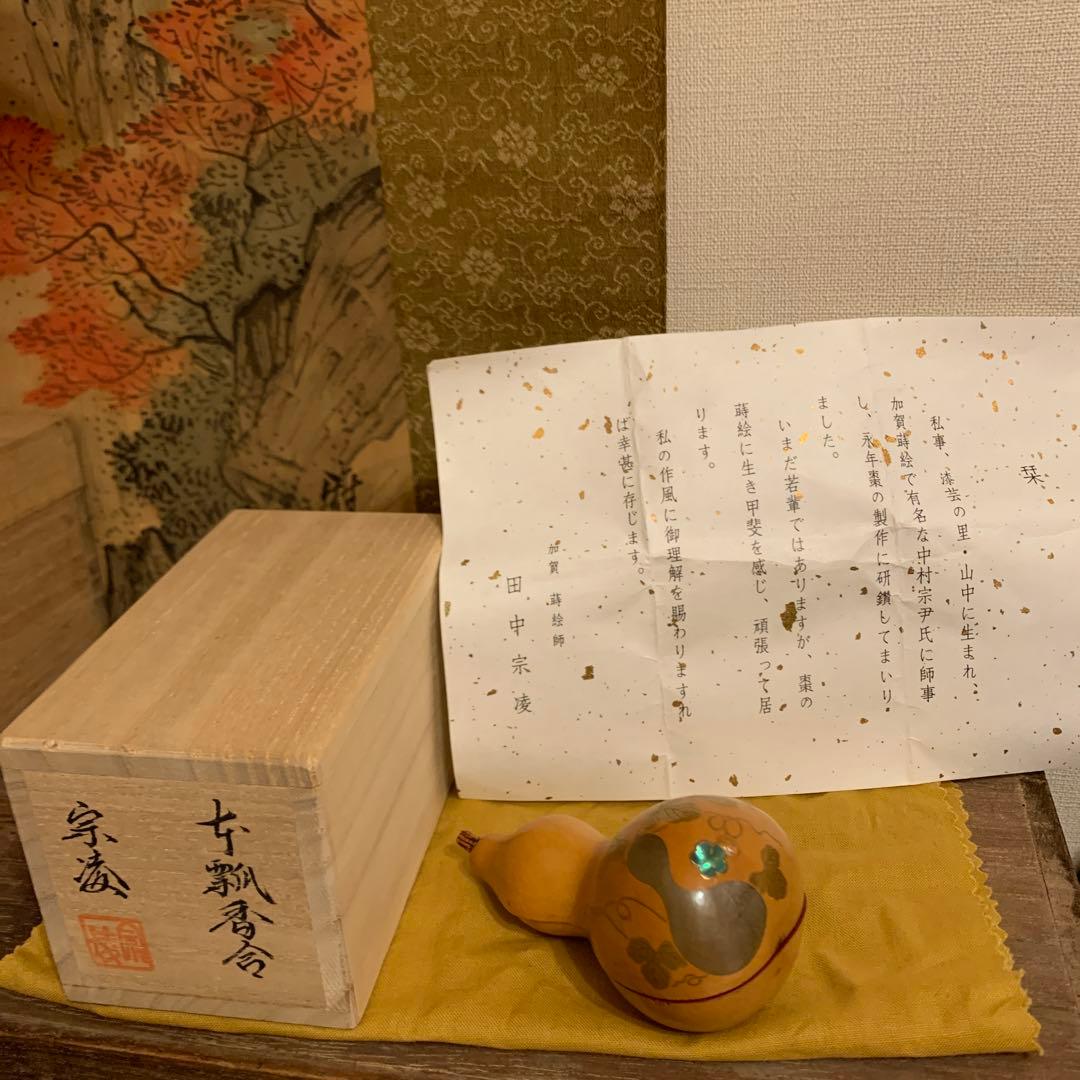 栞
私事、漆芸の里・山中に生まれ、
加賀蒔絵で有名な中村宗尹氏に師事
し、永年棗の製作に研鑽してまいり
ました。
いまだ若輩ではありますが、棗の
蒔絵に生き甲斐を感じ、頑張って居
ります。
私の作風に御理解を賜わりますれ
ば幸甚に存じます。
加賀 蒔絵師
田中宗凌
本瓢香合
宗凌